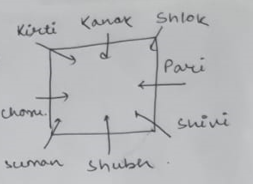 Kirti Kanak Shlok
Pari
Chomu
Shivi
Suman Shubh.